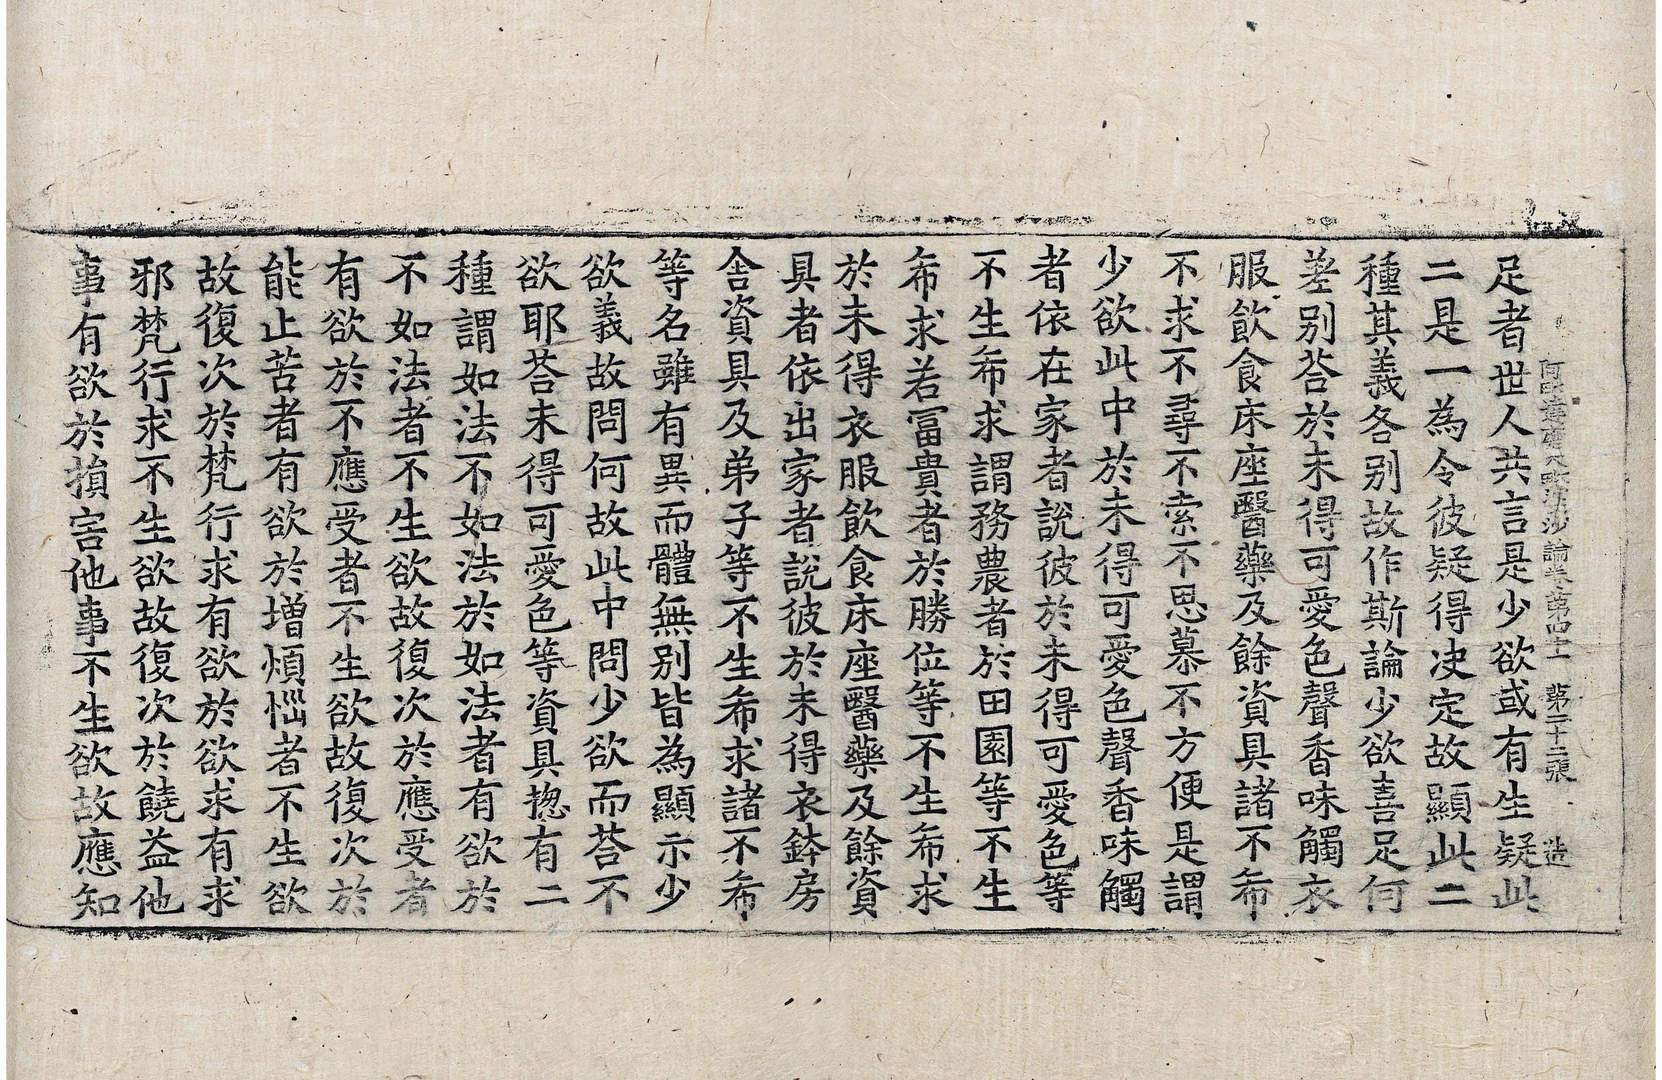 阿毗達磨大毗婆沙論卷第四十一 第二十二張 造
足者世人共言是少欲或有生疑此
二是一為令彼疑得决定故顯此二
種其義各別故作斯論少欲喜足何
差別荅於未得可愛色聲香味觸衣
服飲食床座醫藥及餘資具諸不希
不求不尋不索不思慕不方便是謂
少欲此中於未得可愛色聲香味觸
者依在家者說彼於未得可愛色等
不生希求謂務農者於田園等不生
希求若冨貴者於勝位等不生希求
於未得衣服飲食床座醫藥及餘資
具者依出家者說彼於未得衣鉢房
舍資具及弟子等不生希求諸不希
等名雖有異而體無別皆為顯示少
欲義故問何故此中問少欲而荅不
欲耶荅未得可愛色等資具揔有二
種謂如法不如法於如法者有欲於
不如法者不生欲故復次於應受者
有欲於不應受者不生欲故復次於
能止苦者有欲於增煩惱者不生欲
故復次於梵行求有欲於欲求有求
邪梵行求不生欲故復次於饒益他
事有欲於損害他事不生欲故應知